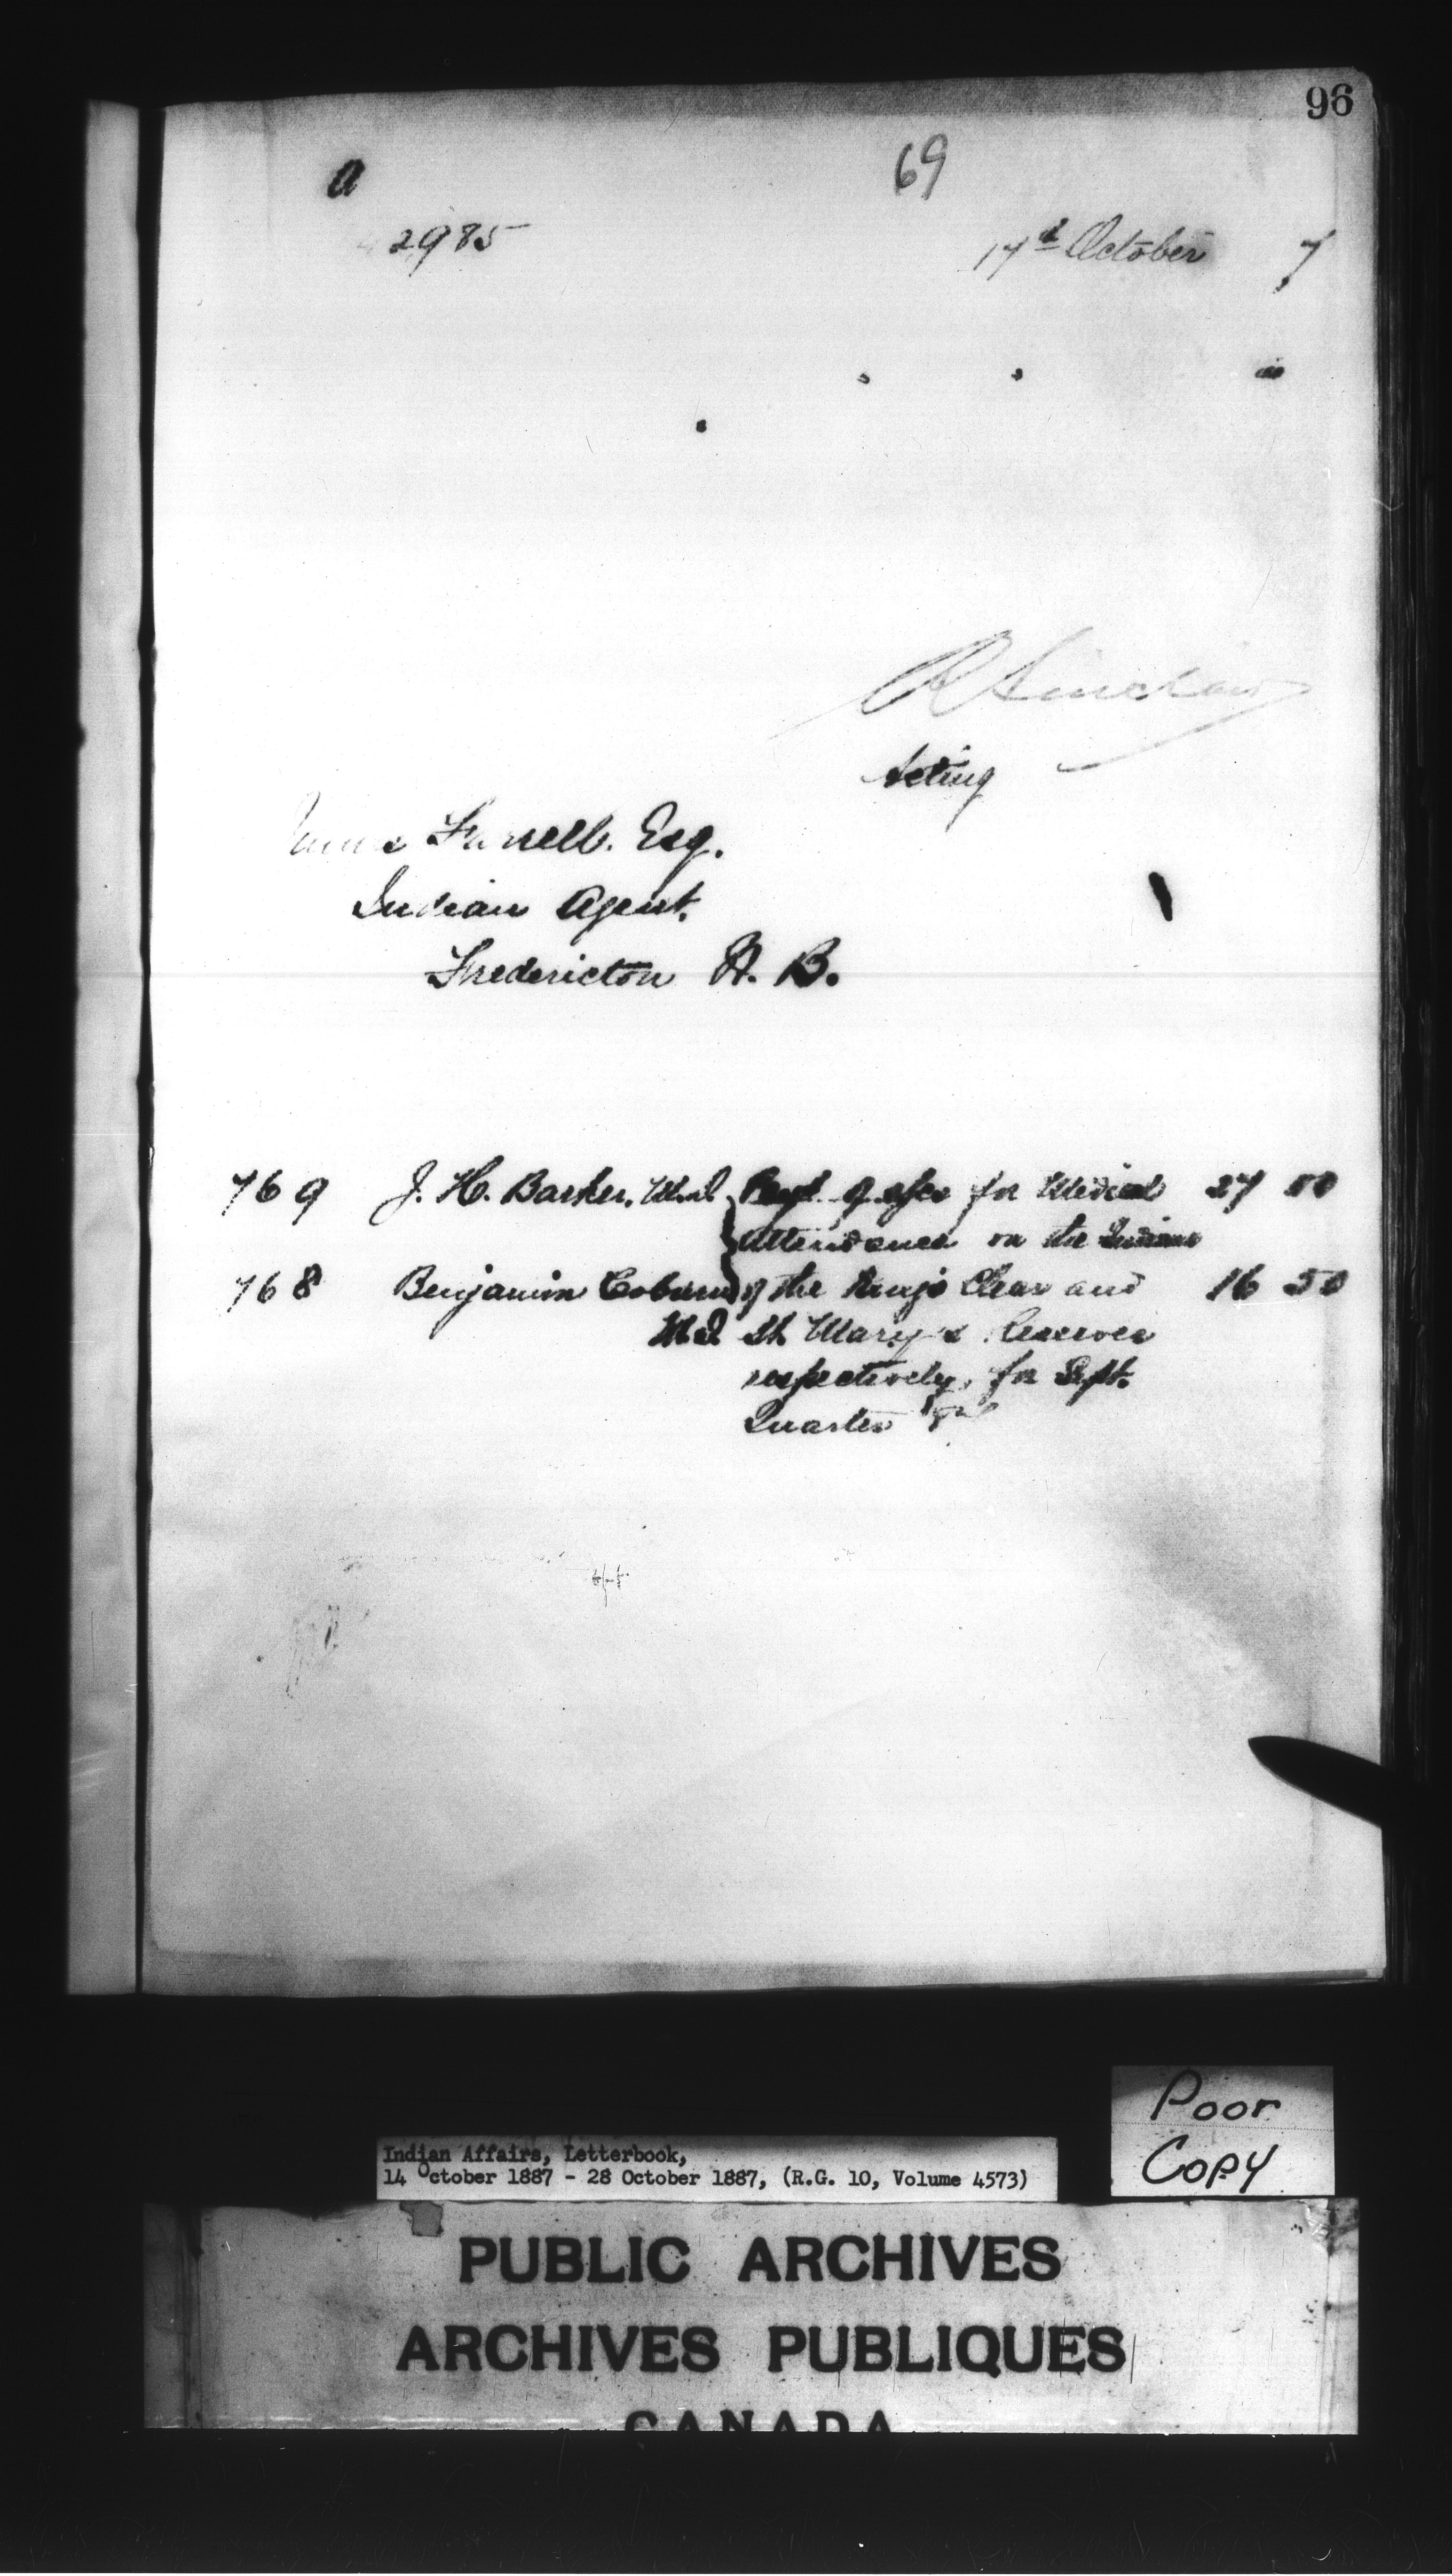 96
69
a
2985
17th October 7
R Sinclair
Acting
James Farrell. Esq.
Indian Agent.
Fredericton N. B.
769 J. H. Barker. M.D. Payt of a/cs for Medical 27 00
attendance on the Indians
768 Benjamin Coburn of the Kings Clear and 16 50
M.D. St. Mary's Reserves
respectively, for Sept.
Quarter
Poor
Copy
Indian Affairs, Letterbook,
14 October 1887 - 28 October 1887, (R.G. 10, Volume 4573)
PUBLIC ARCHIVES
ARCHIVES PUBLIQUES
CANADA